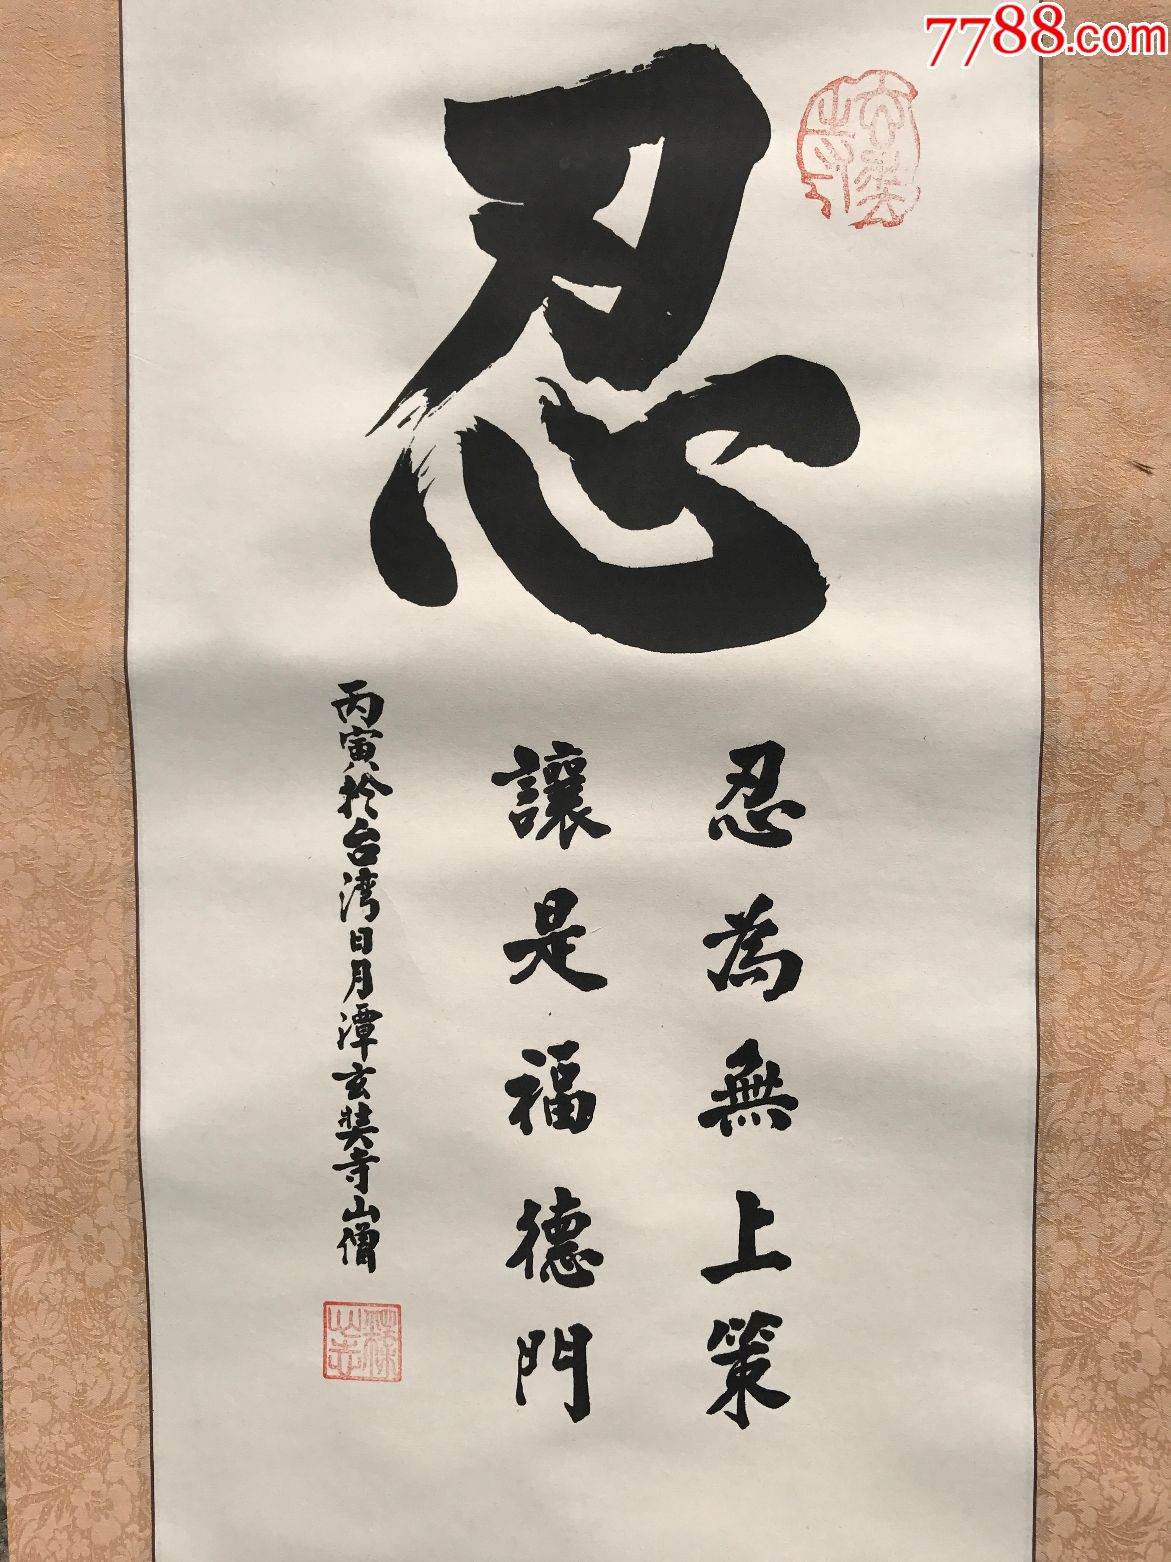 7788.com
忍
忍為無上策
讓是福德門
丙寅於台湾日月潭玄奘寺山僧